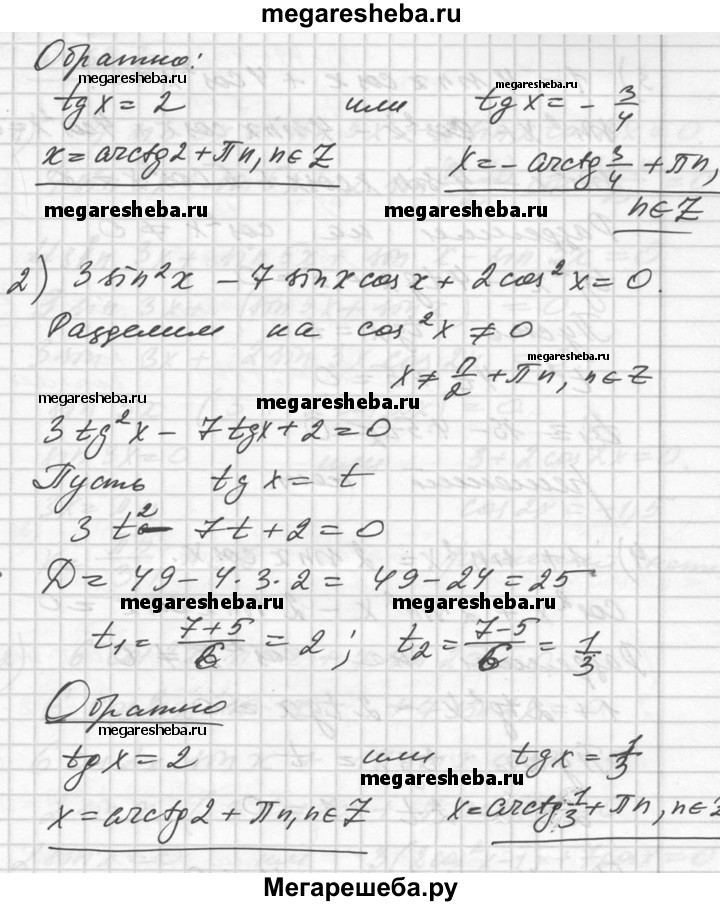 megaresheba.ru
Обратно:
megaresheba.ru
tg x = 2 или tg x = - 3/4
megaresheba.ru
x = arctg 2 + πn, n∈Z x = - arctg 3/4 + πn,
n∈Z
megaresheba.ru megaresheba.ru
2) 3 sin²x - 7 sin x cos x + 2 cos²x = 0.
Разделим на cos²x ≠ 0
megaresheba.ru
x ≠ π/2 + πn, n∈Z
megaresheba.ru megaresheba.ru
3 tg²x - 7 tg x + 2 = 0
Пусть tg x = t
3 t² - 7t + 2 = 0
D = 49 - 4·3·2 = 49 - 24 = 25
megaresheba.ru megaresheba.ru
t₁ = (7+5)/6 = 2 ; t₂ = (7-5)/6 = 1/3
Обратно
megaresheba.ru
tg x = 2 или tg x = 1/3
megaresheba.ru
x = arctg 2 + πn, n∈Z x = arctg 1/3 + πn, n∈Z
Мегарешеба.ру